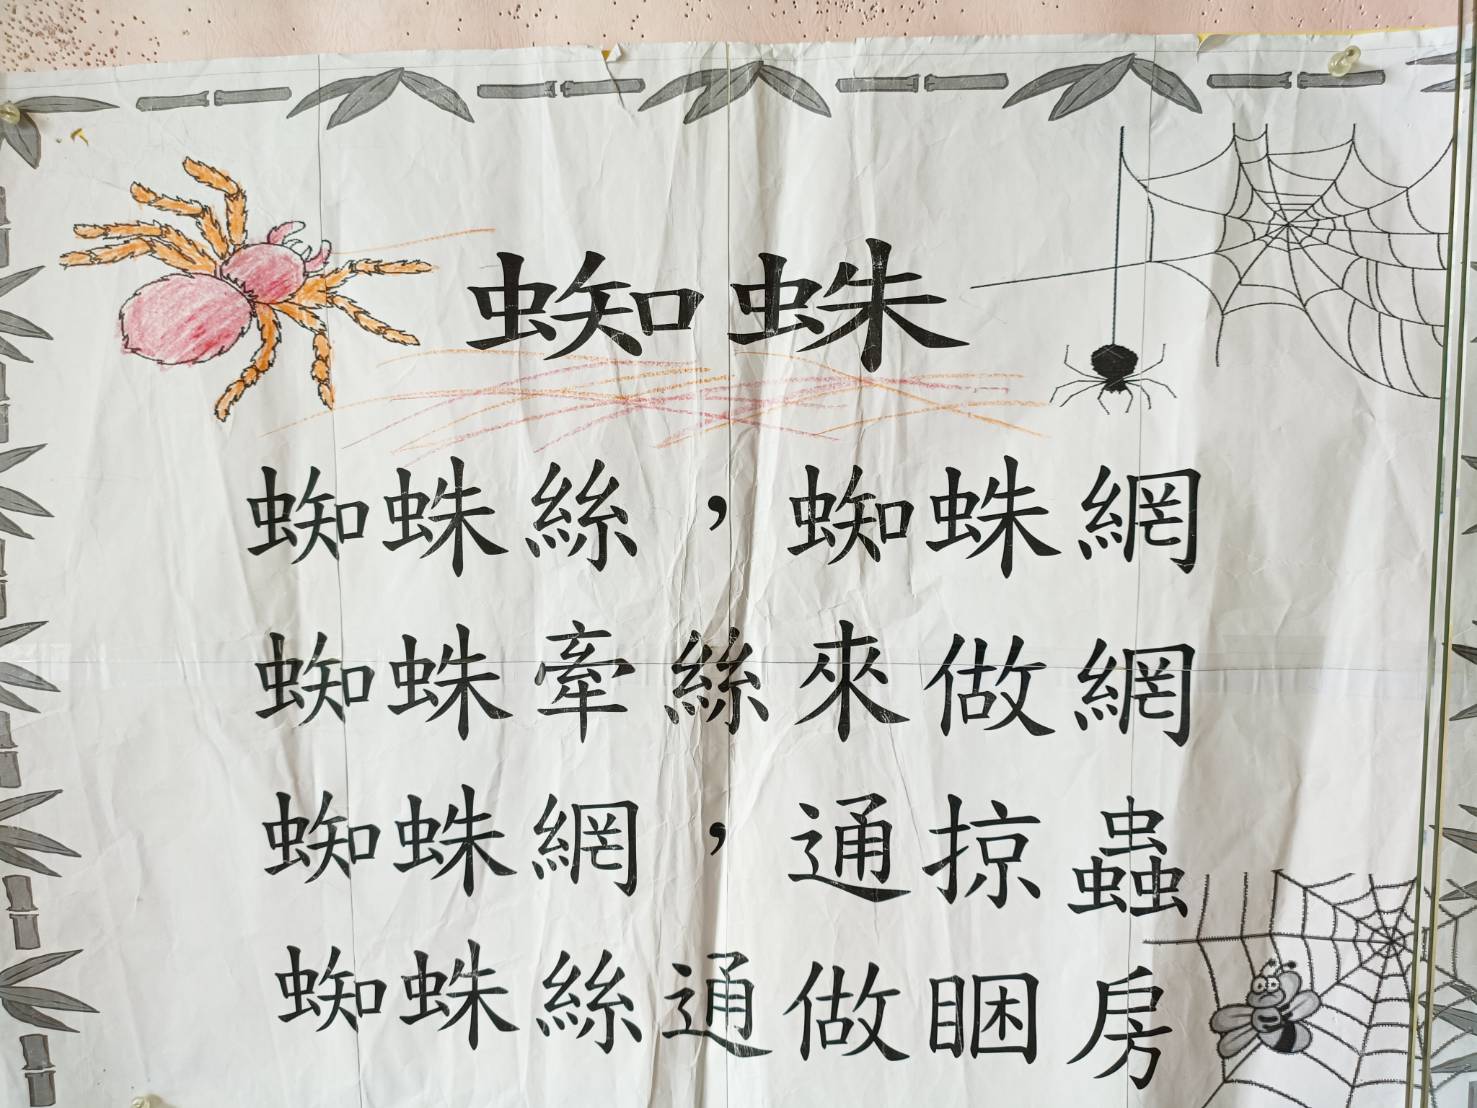 蜘蛛
蜘蛛絲，蜘蛛網
蜘蛛牽絲來做網
蜘蛛網，通掠蟲
蜘蛛絲通做睏房